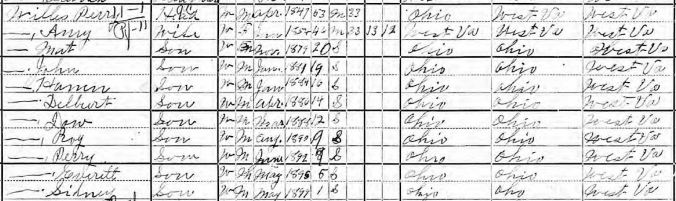 Willes Perry Head W M Apr. 1847 53 M 33 Ohio West Va West Va
—, Amy Wife W F 13 12 West Va West Va West Va
— Mat Son W M Nov. 1879 20 S Ohio Ohio West Va
— John Son W M June 1881 19 S Ohio Ohio West Va
— Son W M Jan 1884 16 S Ohio Ohio West Va
— Delbert Son W M Apr 1886 14 S Ohio Ohio West Va
—, Dow Son W M Mar 1888 12 S Ohio Ohio West Va
—, Roy Son W M Aug. 1890 9 S Ohio Ohio West Va
—, Perry Son W M June 1892 S Ohio Ohio West Va
— Everitt Son W M May 1895 5 S Ohio Ohio West Va
— Sidney Son W M May 1899 1 S Ohio Ohio West Va